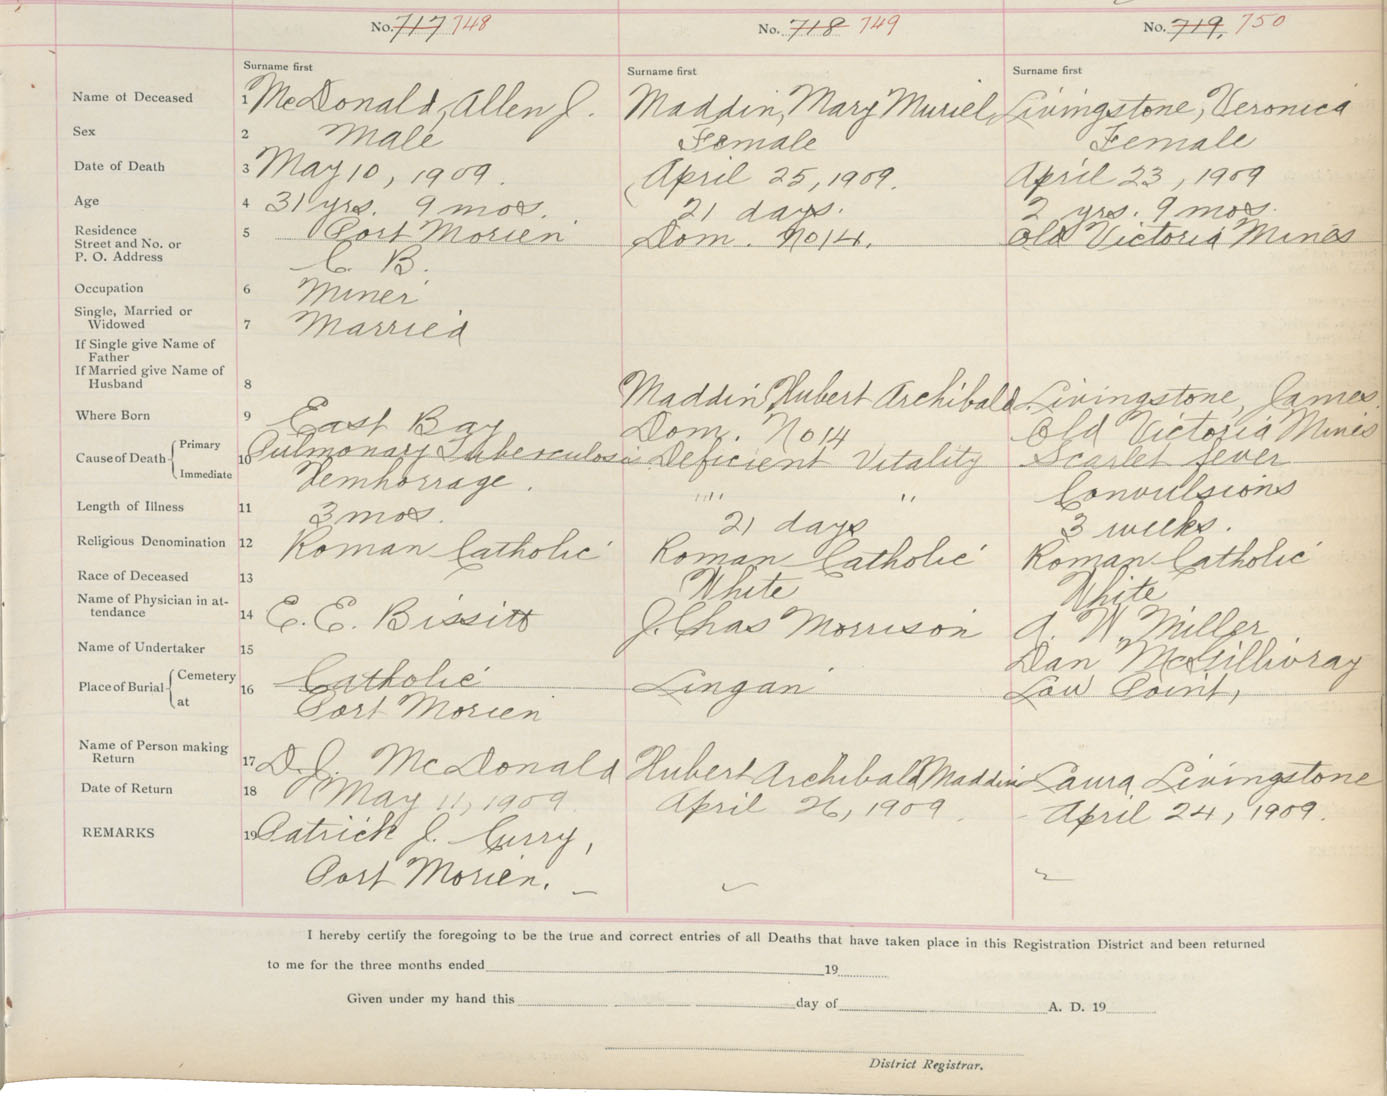 No. 717 748 No. 718 749 No. 719. 750
Surname first Surname first Surname first
Name of Deceased 1 McDonald, Allen J. Maddin, Mary Muriel, Livingstone, Veronica
Sex 2 Male Female Female
Date of Death 3 May 10, 1909. April 25, 1909. April 23, 1909
Age 4 31 yrs. 9 mos. 21 days. 2 yrs. 9 mos.
Residence
Street and No. or
P. O. Address
5 Port Morien Dom. No 14. Old Victoria Mines
C. B.
Occupation 6 Miner
Single, Married or
Widowed
7 Married
If Single give Name of
Father
If Married give Name of
Husband
8 Maddin, Hubert Archibald. Livingstone, James.
Where Born 9 East Bay Dom. No 14 Old Victoria Mines
Cause of Death Primary
Immediate
10 Pulmonary Tuberculosis Deficient Vitality Scarlet fever
Hemhorrage. " " Convulsions
Length of Illness 11 3 mos. 21 days 3 weeks.
Religious Denomination 12 Roman Catholic Roman Catholic Roman Catholic
Race of Deceased 13 White White
Name of Physician in at-
tendance
14 E. E. Bissitt J. Chas Morrison A. W. Miller
Name of Undertaker 15 Dan McGillivray
Place of Burial Cemetery
at
16 Catholic Lingan Low Point,
Port Morien
Name of Person making
Return
17 D. J. McDonald Hubert Archibald Maddin Laura Livingstone
Date of Return 18 May 11, 1909 April 26, 1909. April 24, 1909.
REMARKS 19 Patrick J. Curry,
Port Morien.
I hereby certify the foregoing to be the true and correct entries of all Deaths that have taken place in this Registration District and been returned
to me for the three months ended 19
Given under my hand this day of A. D. 19
District Registrar.